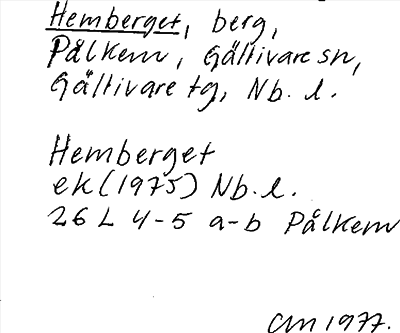 Hemberget, berg,
Pålkem, Gällivare sn,
Gällivare tg, Nb. l.
Hemberget
ek (1975) Nb. l.
26 L 4-5 a-b Pålkem
CM 1977.